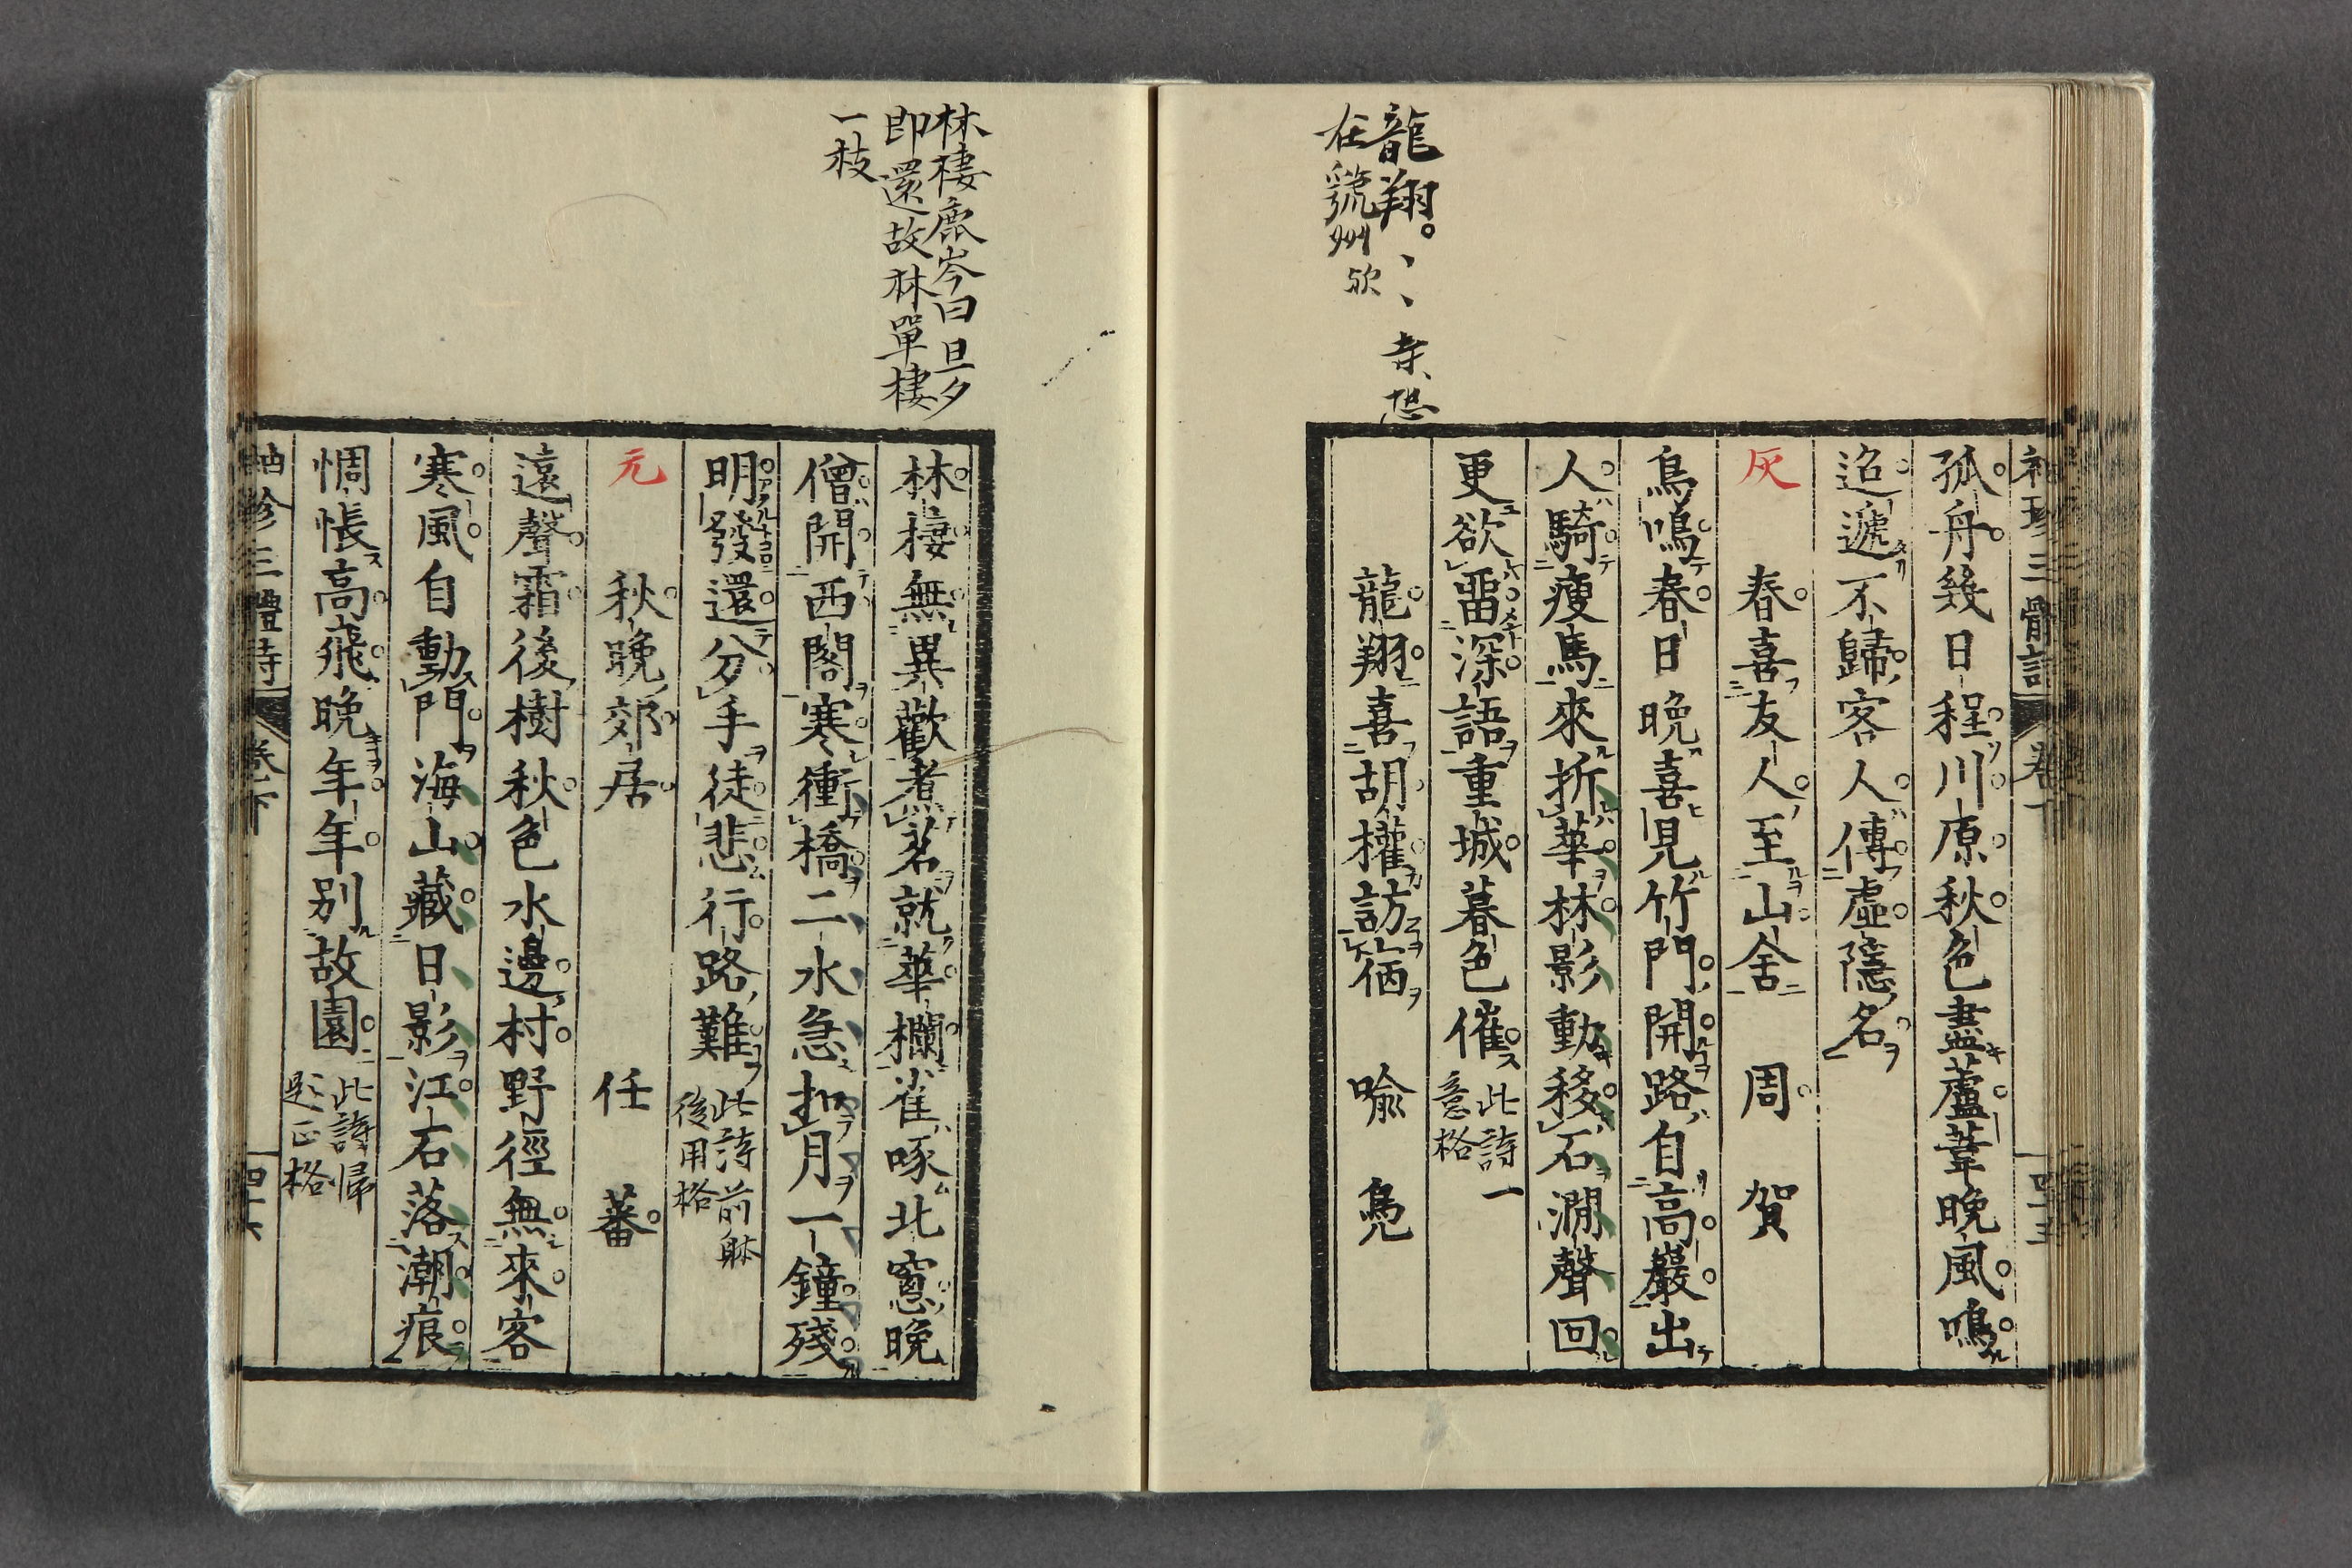 龍翔。、、寺恐
在號州欤
孤舟幾日程川原秋色盡蘆葦晚風鳴
迢遞不歸客人傳虛隱名
灰 春喜友人至山舍 周賀
鳥鳴春日晚喜見竹門開路自高巖出
人騎瘦馬來折華林影動移石澗聲回
更欲畱深語重城暮色催 此詩一
意格
龍翔喜胡權訪宿 喩鳧
林棲鹿岑曰旦夕
即還故林單棲
一枝
林棲無異歡煮茗就華欄雀啄北窻晚
僧開西閣寒衝橋二水急扣月一鐘殘
明發還分手徒悲行路難 此詩前躰
後用格
元 秋晚郊居 任蕃
遠聲霜後樹秋色水邊村野徑無來客
寒風自動門海山藏日影江石落潮痕
惆悵高飛晚年年別故園 此詩歸
題正格
袖珍三體詩 卷下 四十六